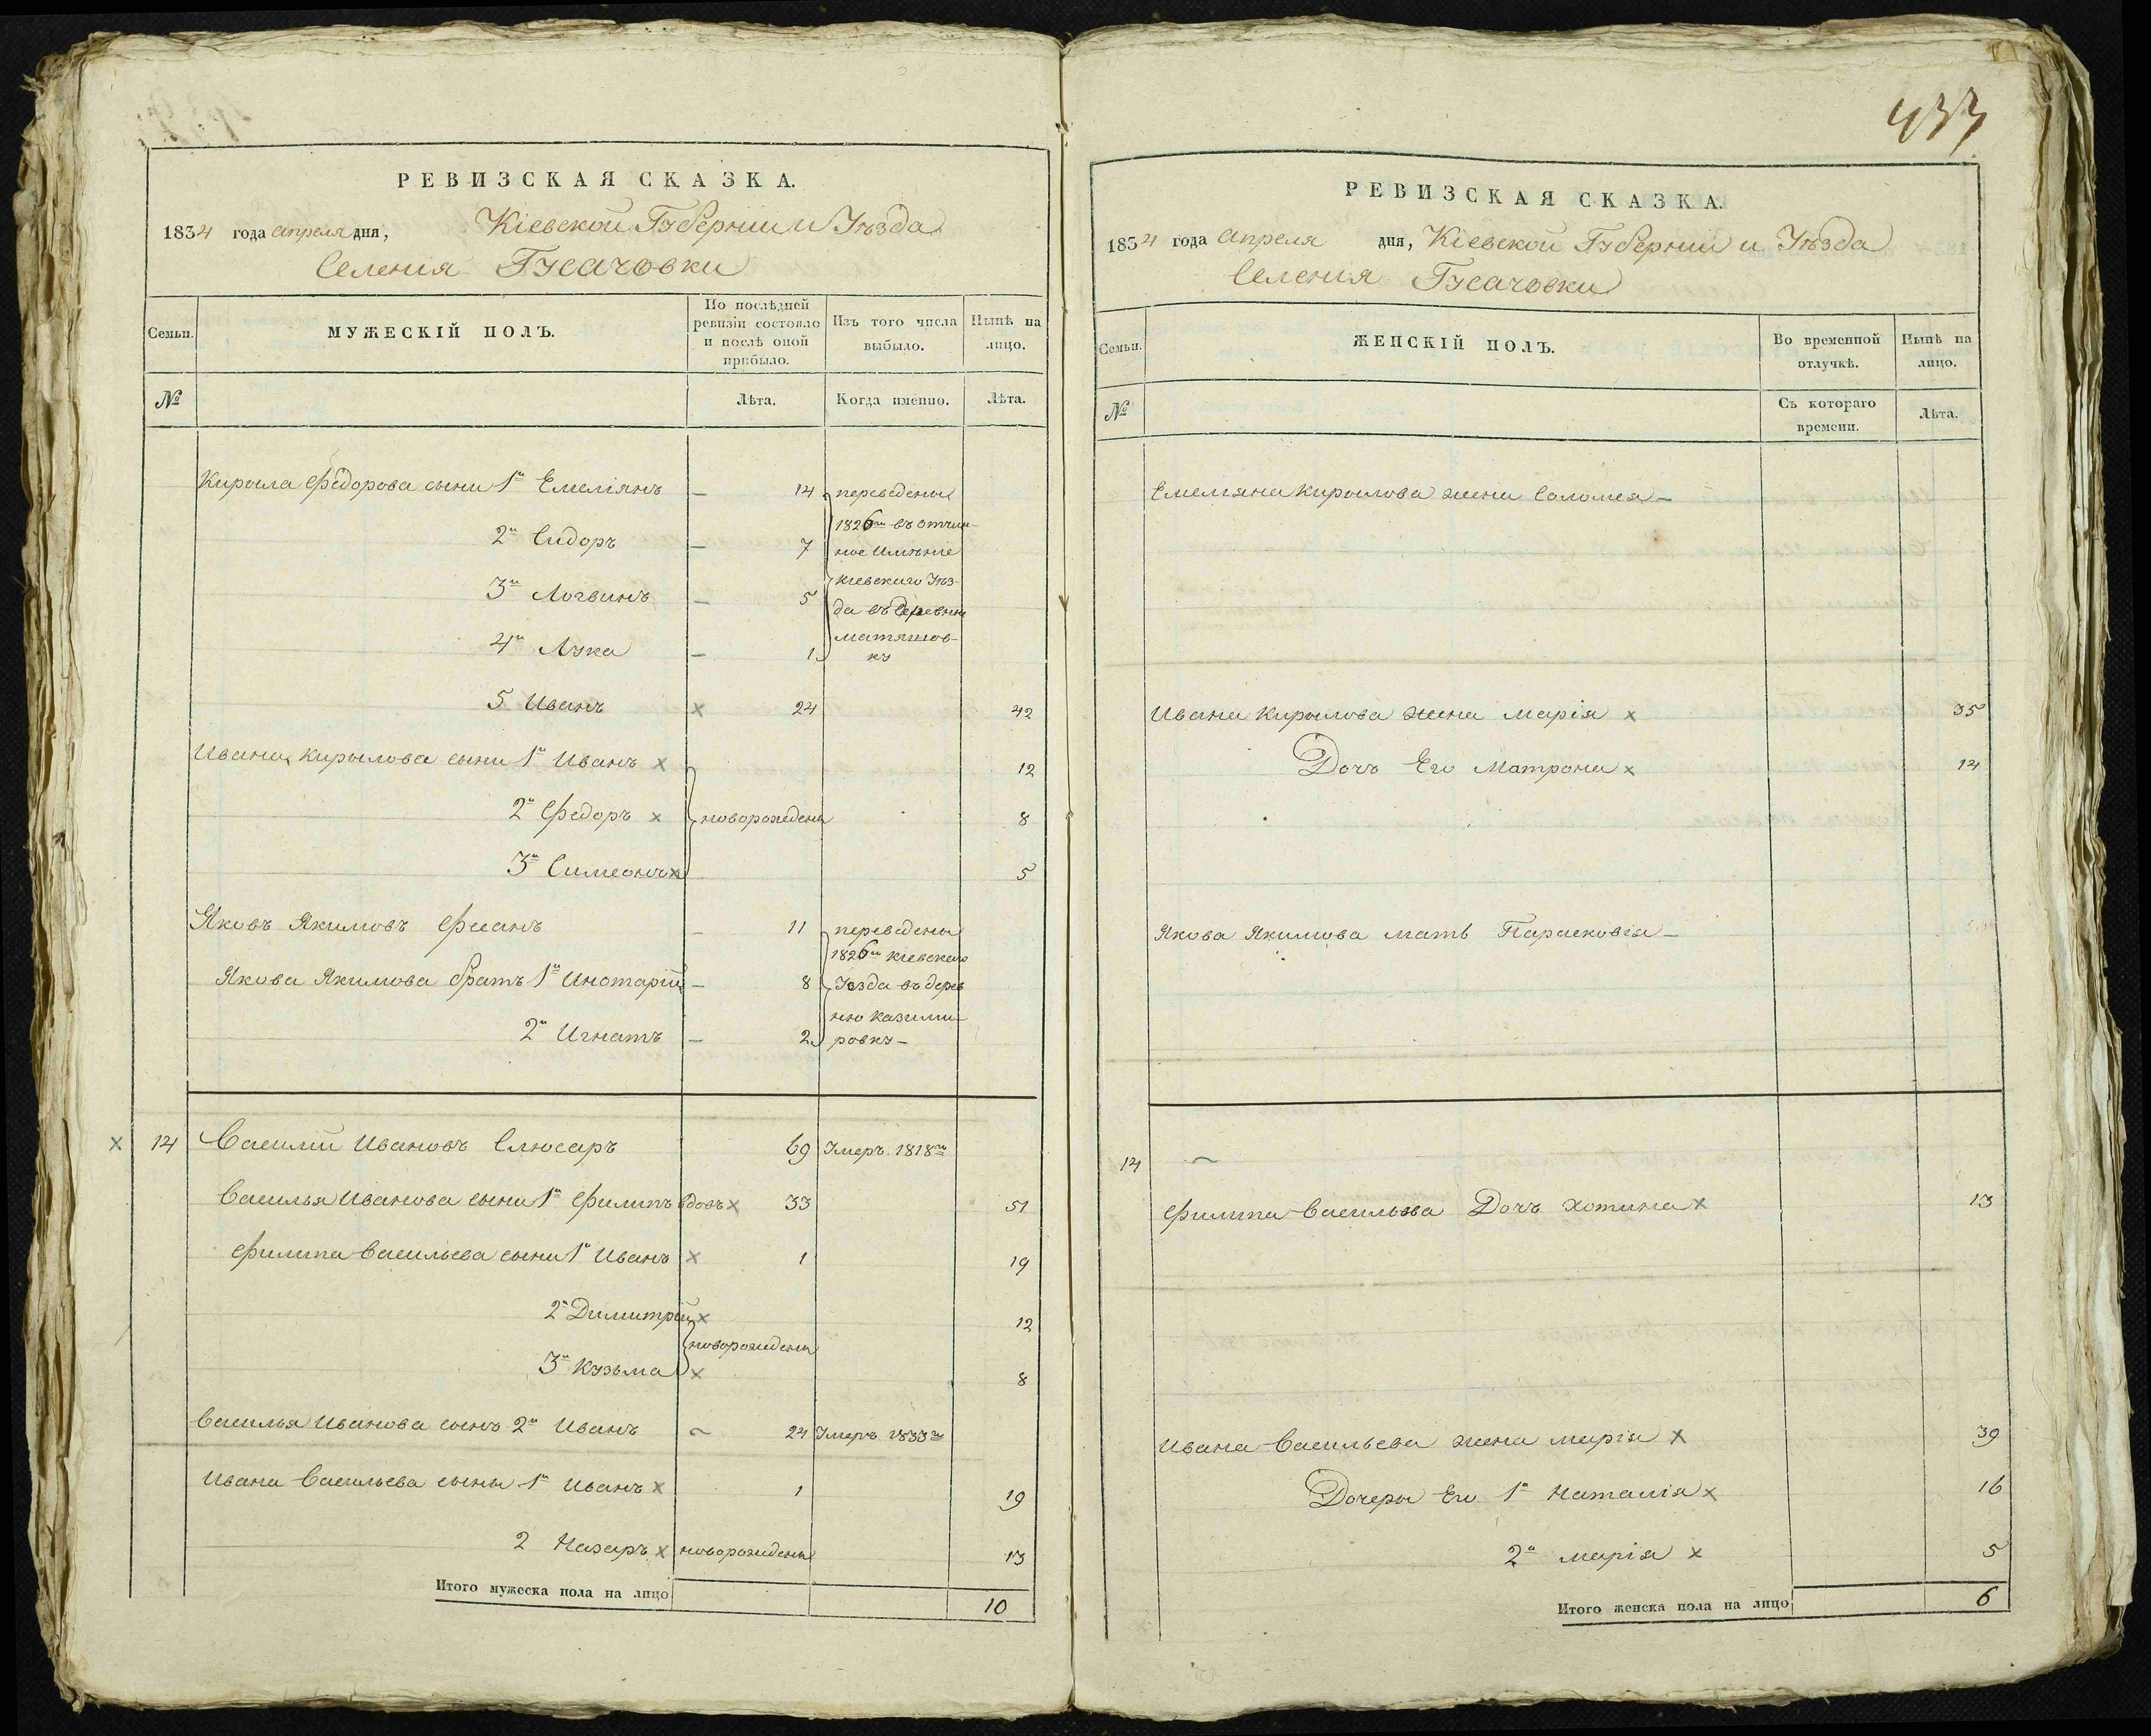 РЕВИЗСКАЯ СКАЗКА.
1834 года апреля дня, Кіевской Губерніи и Уѣзда
Селенія Гусачовки
Семьи. МУЖЕСКІЙ ПОЛЪ. По послѣдней ревизіи состояло и послѣ оной прибыло. Изъ того числа выбыло. Нынѣ на лицо.
№ Лѣта. Когда именно. Лѣта.
Кирыла Федорова сыны 1й Емеліянъ — 14 переведены
2й Сидоръ — 7 1826го въ отчин-
ное имѣніе
3й Логвинъ — 5 Кіевскаго Уѣз-
да въ деревню
4й Лука — 1 Матяшов-
ку
5 Иванъ х 24 42
Ивана Кирылова сыны 1й Иванъ х 12
2й Федоръ х новорождены 8
3й Симеонъ х 5
Яковъ Якимовъ 11 переведены
1826го Кіевскаго
Якова Якимова братъ 1й — 8 Уѣзда въ дерев
ню Казими-
2й Игнатъ — 2 ровку —
х 14 Василій Ивановъ Слюсаръ 69 Умеръ 1818го
Василья Иванова сыны 1й Филипъ вдовъ х 33 51
Филипа Васильева сыны 1й Иванъ х 1 19
2й Димитрій х 12
новорождены
3й Кузьма х 8
Василья Иванова сынъ 2й Иванъ ~ 24 Умеръ 1833го
Ивана Васильева сыны 1й Иванъ х 1 19
2 Назаръ х новорожденъ 13
Итого мужеска пола на лицо 10
433
РЕВИЗСКАЯ СКАЗКА.
1834 года апреля дня, Кіевской Губерніи и Уѣзда
Селенія Гусачовки
Семьи. ЖЕНСКІЙ ПОЛЪ. Во временной отлучкѣ. Нынѣ на лицо.
№ Съ котораго времени. Лѣта.
Емеляна Кирылова жена Соломея —
Ивана Кирылова жена Марія х 35
Дочъ Его Матрона х 14
Якова Якимова мать Парасковія —
14 ~
Филипа Васильева Дочъ Хотина х 13
Ивана Васильева жена Марія х 39
Дочеры Его 1я Наталія х 16
2я Марія х 5
Итого женска пола на лицо 6